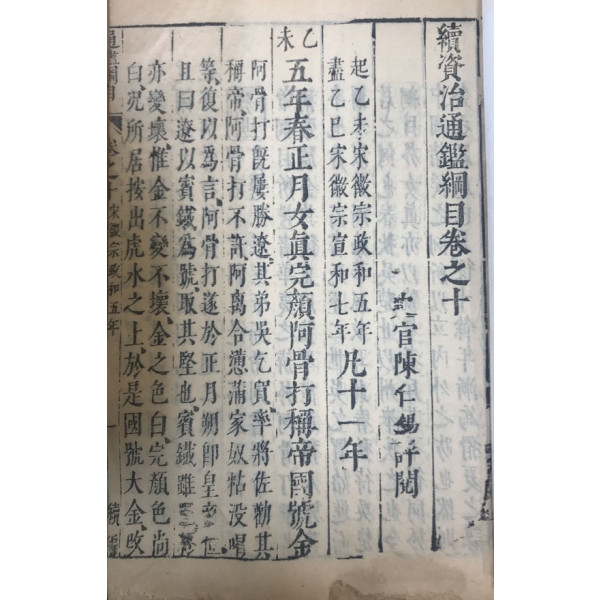 續資治通鑑綱目卷之十
史官陳仁錫評閱
起乙未宋徽宗政和五年
盡乙巳宋徽宗宣和七年
凡十一年
乙未
五年春正月女眞完顏阿骨打稱帝國號金
阿骨打旣屢勝遼其弟吳乞買率將佐勸其
稱帝阿骨打不許阿离合懣蒲家奴粘没喝
等復以為言阿骨打遂於正月朔卽皇帝位
且曰遼以賓鐵為號取其堅也賓鐵雖
亦變壞惟金不變不壞金之色白完顏色尚
白况所居按出虎水之上於是國號大金改
通鑑綱目
卷之十
宋徽宗政和五年